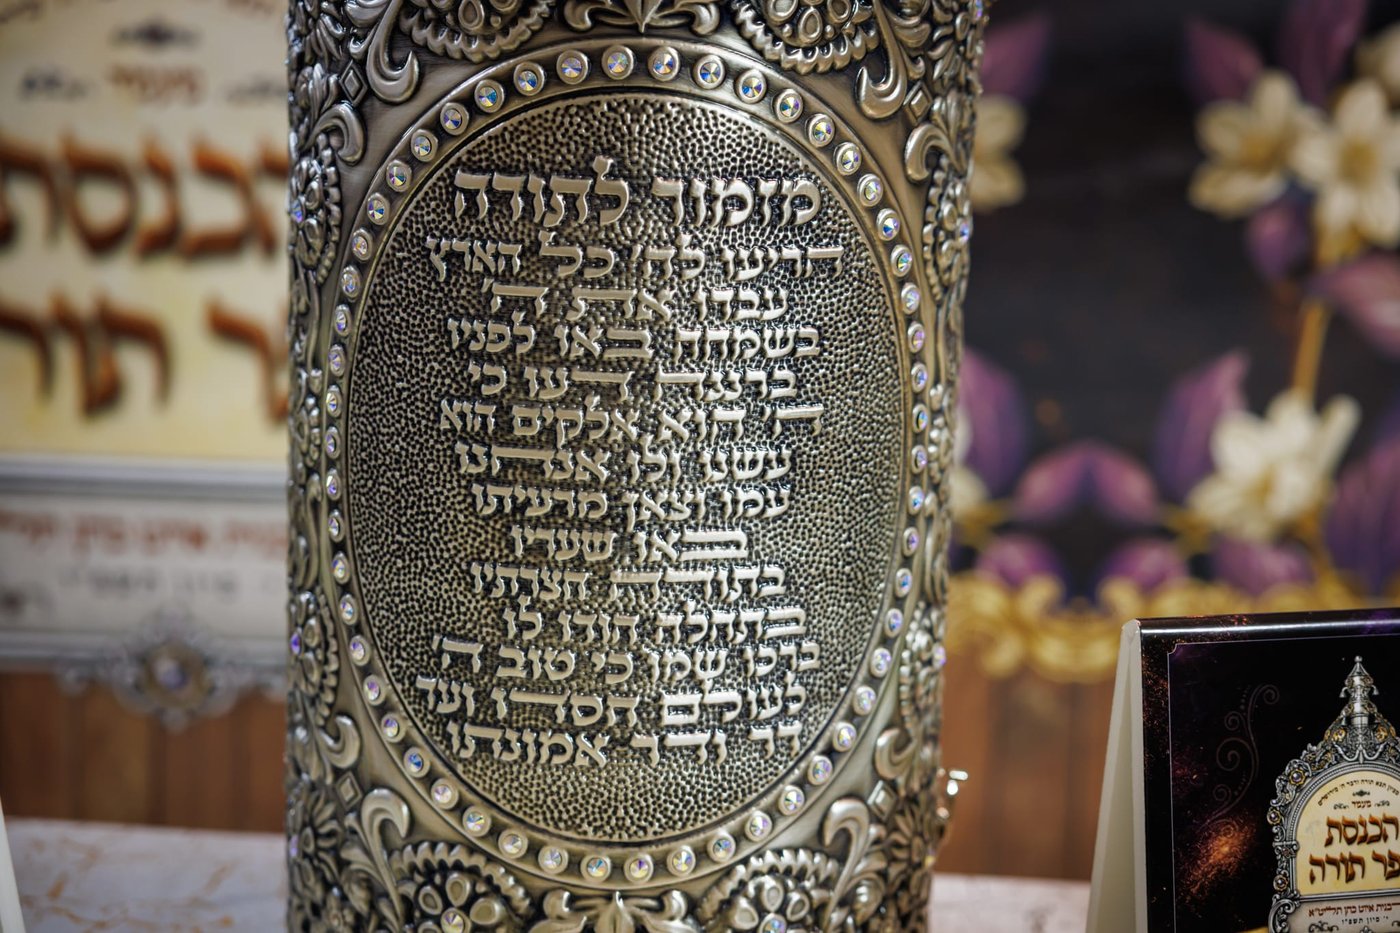 מזמור לתודה
הריעו לה' כל הארץ
עבדו את ה'
בשמחה באו לפניו
ברננה דעו כי
ה' הוא אלקים הוא
עשנו ולו אנחנו
עמו וצאן מרעיתו
באו שעריו
בתודה חצרתיו
בתהלה הודו לו
ברכו שמו כי טוב ה'
לעולם חסדו ועד
דר ודר אמונתו
מעמד
הכנסת
תור
מעמד
הכנסת
ספר תורה